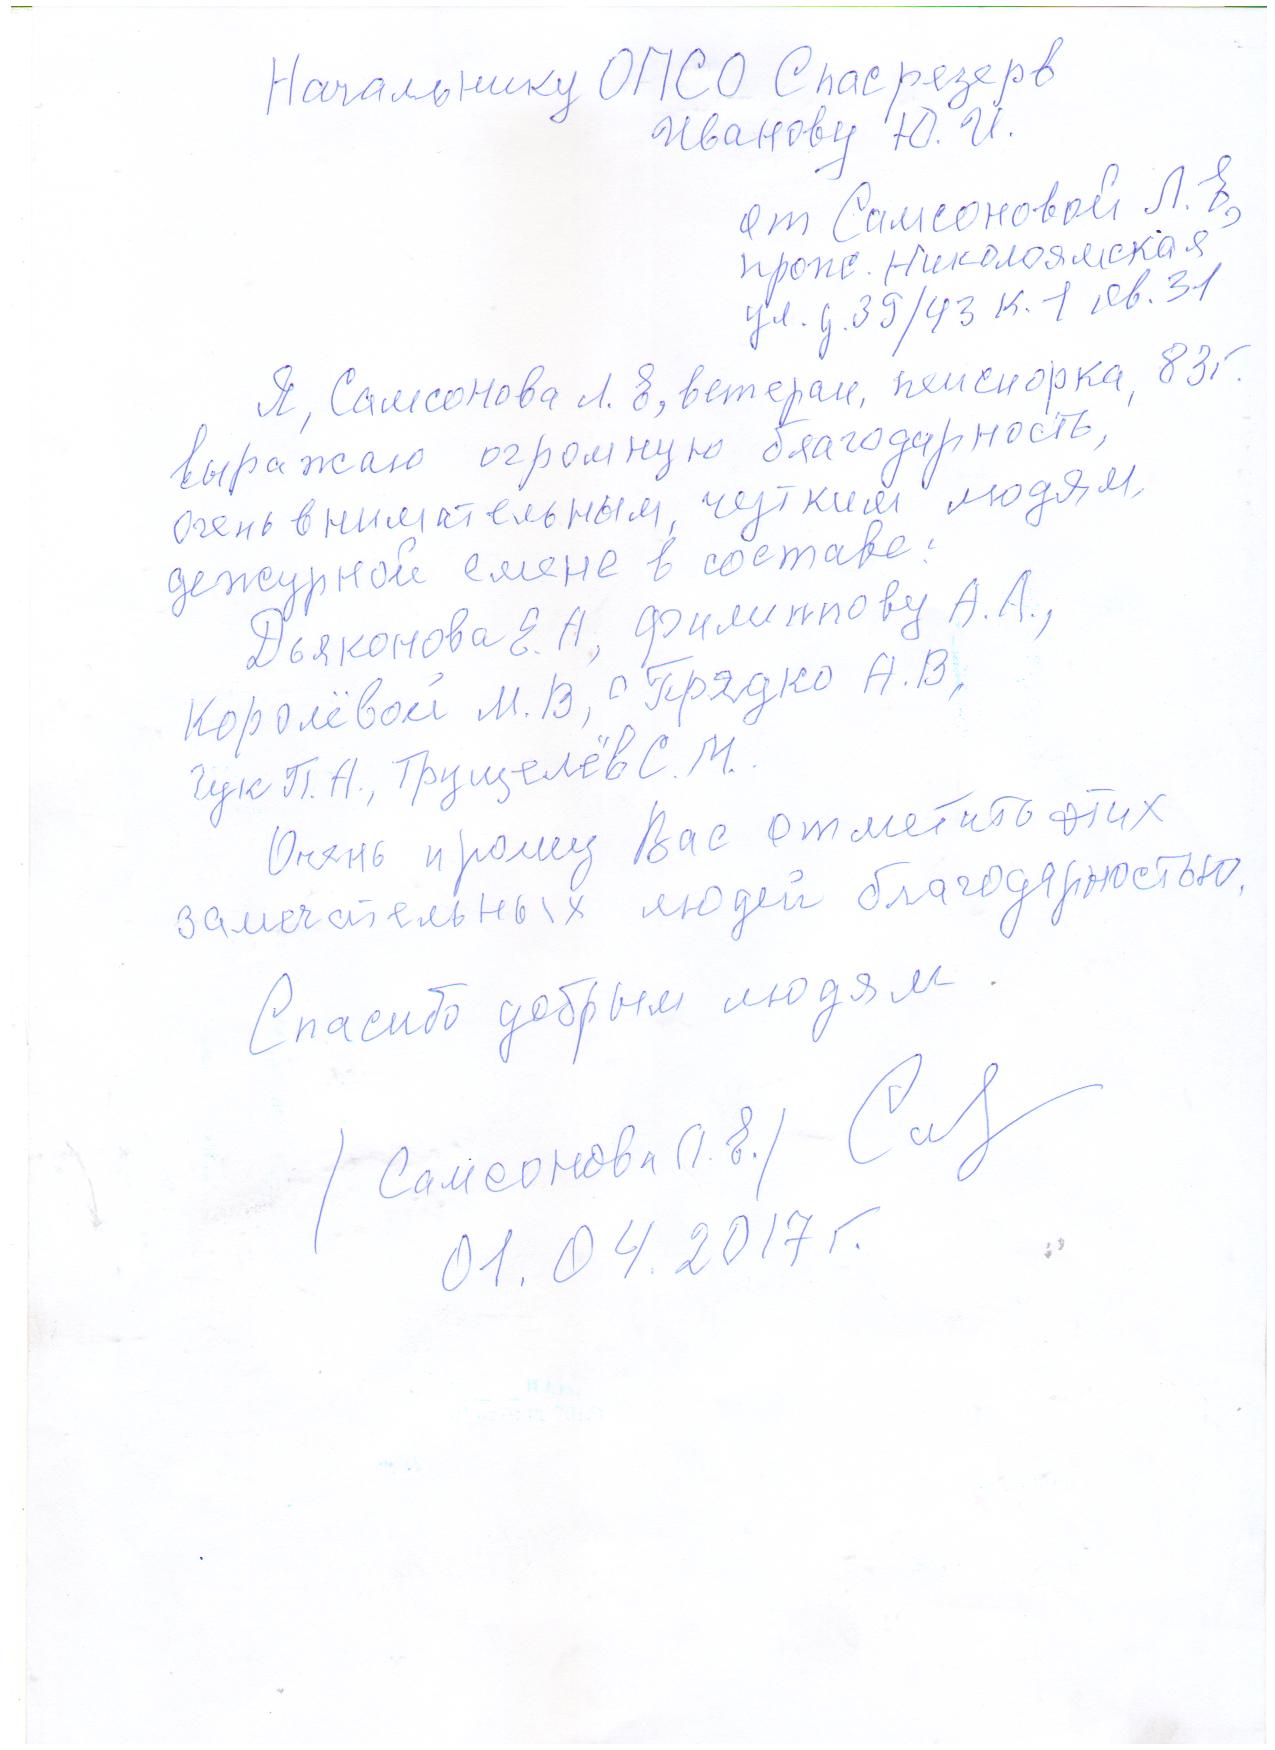 Начальнику ОПСО Спасрезерв
Иванову Ю. И.
от Самсоновой Л. Е,
прож. Николоямская
ул. д. 39/43 к. 1 кв. 31
Я, Самсонова Л. Е, ветеран, пенсионрка, 83г.
выражаю огромную благодарность,
очень внимательным, чутким людям,
дежурной смене в составе:
Дьяконова Е. А, Филиппову А. А.,
Королёвой М. В, Прядко А. В,
Чук П. А., Трущелёв С. М.
Очень прошу Вас отметить этих
замечательных людей благодарностью.
Спасибо добрым людям.
/ Самсонова Л. Е. /
01.04.2017г.